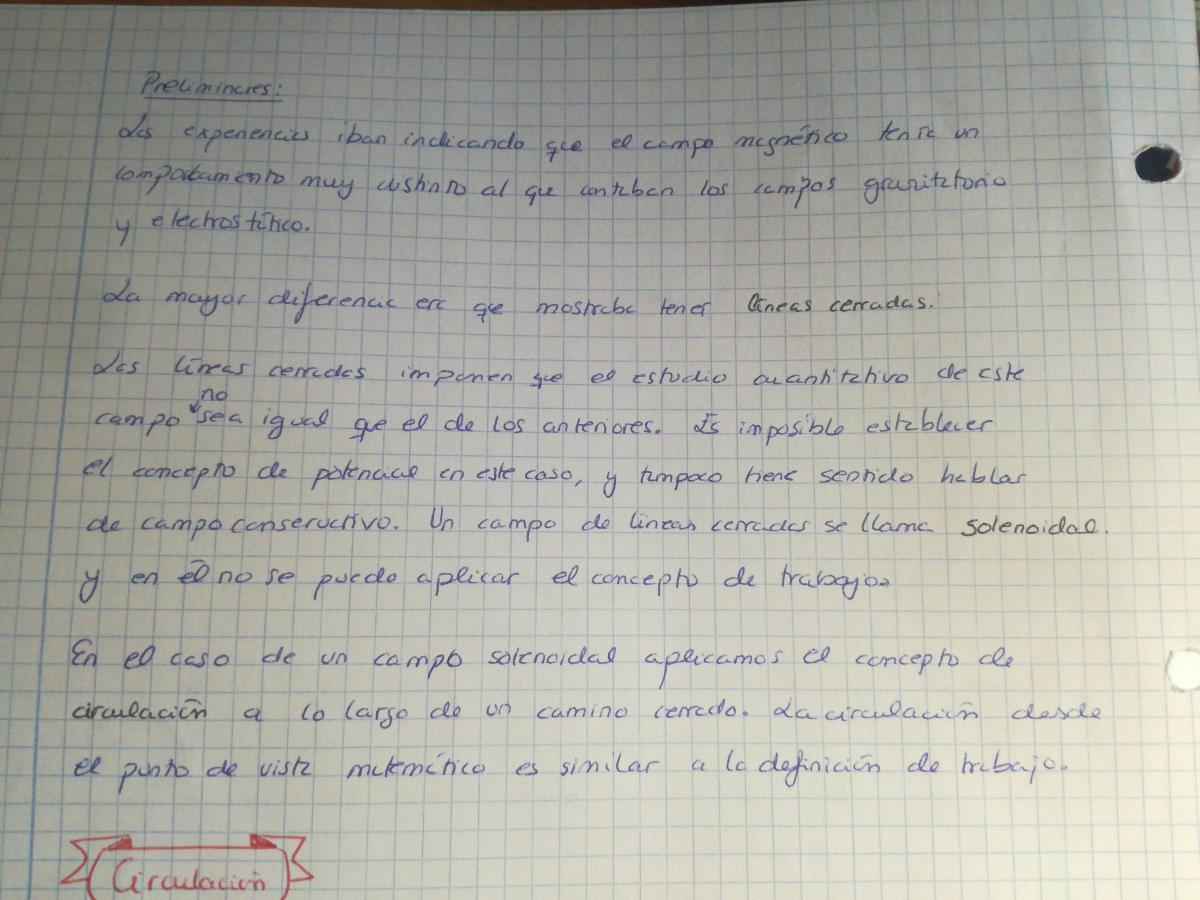 Preliminares:
Las experiencias iban indicando que el campo magnético tenía un
comportamento muy distinto al que tenían los campos gravitatorio
y electrostático.
La mayor diferencia era que mostraba tener líneas cerradas.
Las líneas cerradas imponen que el estudio cuantitativo de este
no
campo sea igual que el de los anteriores. Es imposible establecer
el concepto de potencial en este caso, y tampoco tiene sentido hablar
de campo conservativo. Un campo de líneas cerradas se llama solenoidal.
y en él no se puede aplicar el concepto de trabajo.
En el caso de un campo solenoidal aplicamos el concepto de
circulación a lo largo de un camino cerrado. La circulación desde
el punto de vista matemático es similar a la definición de trabajo.
Circulación